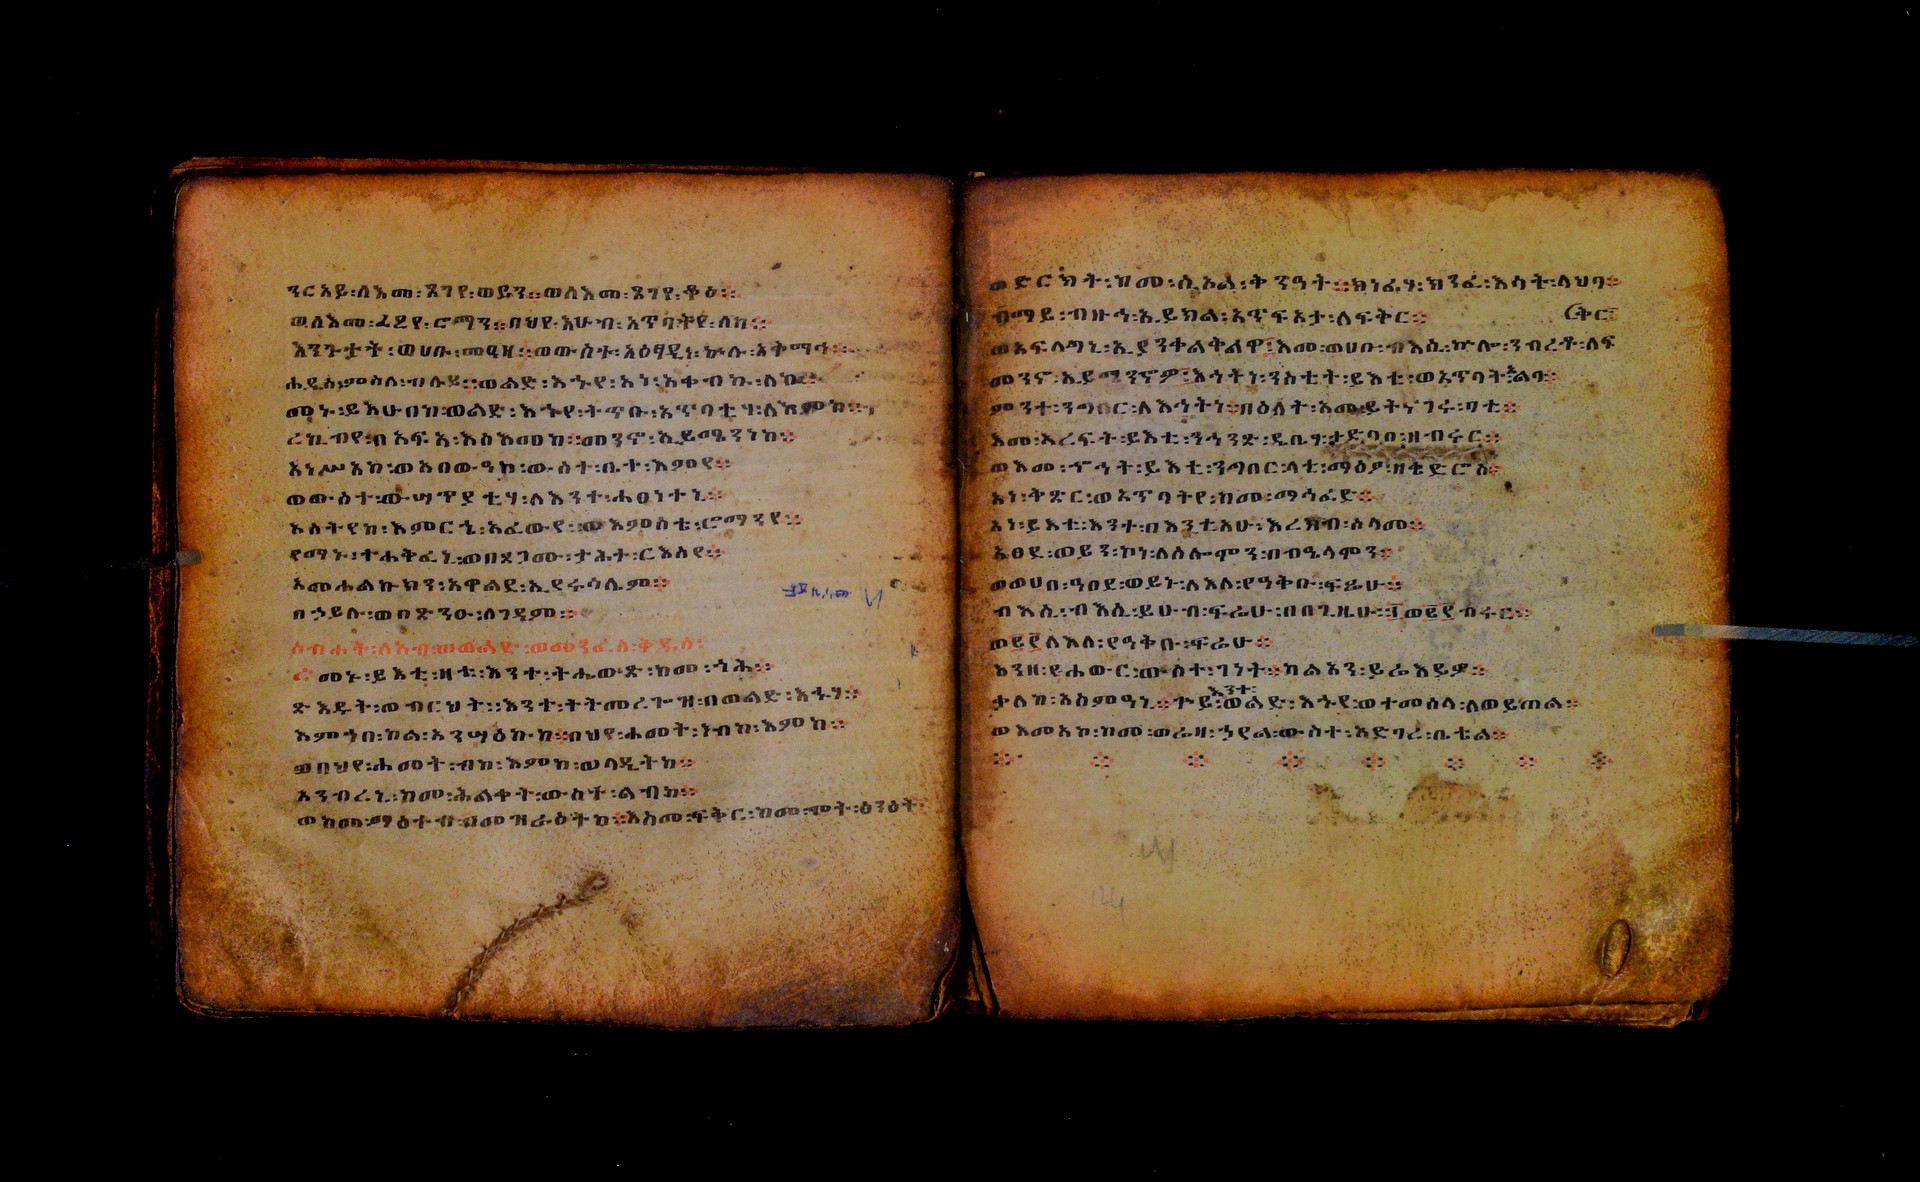 ንርአይ፡ለእመ፡ጸገየ፡ወይን፨ወለእመ፡ጸገየ፡ቆዕ፨
ወለእመ፡ፈረየ፡ሮማን፨በህየ፡እሁብ፡አጥባትየ፡ለከ፨
እንጉታት፡ወሀቡ፡መዓዛ፨ወውስተ፡አዕፃዲነ፡ኵሉ፡አቅማሕ፨
ሐዲስ፡ምስለ፡ብሉይ፨ወልድ፡እኅየ፡አነ፡አቀብኩ፡ለከ፨
መኑ፡ይሁበከ፡ወልድ፡እኅየ፡ትጥቡ፡አጥባቲሃ፡ለእምከ፨
ረኪብየ፡በአፍአ፡እስእመከ፨መንኖ፡ኢይሜንነከ፨
አነሥአከ፡ወአበውዓከ፡ውስተ፡ቤተ፡እምየ፨
ወውስተ፡ውሣጥያቲሃ፡ለእንተ፡ሐፀነተኒ፨
አሰትየከ፡እምርኄ፡አፈውየ፡ወእምስቴ፡ሮማንየ፨
የማኑ፡ተሐቅፈኒ፡ወፀጋሙ፡ታሕተ፡ርእስየ፨
አመሐልኩክን፡አዋልደ፡ኢየሩሳሌም፨
በኃይሉ፡ወበጽንዑ፡ለገዳም፨
ስብሐት፡ለአብ፡ወወልድ፡ወመንፈስ፡ቅዱስ፡
መኑ፡ይእቲ፡ዛቲ፡እንተ፡ትሔውጽ፡ከመ፡ጎሕ፨
ጽእዱት፡ወብርህት፡፡እንተ፡ትትመረጐዝ፡በወልድ፡እኁሃ፨
እምኀበ፡ከል፡አንሣዕኩከ፨በህየ፡ሐመት፡ብከ፡እምከ፨
ወበህየ፡ሐመት፡ብከ፡እምከ፡ወላዲትከ፨
አንብረኒ፡ከመ፡ሕልቀት፡ውስተ፡ልብከ፨
ወከመ፡ማዕተብ፡ዘመዝራዕትከ፨እስመ፡ፍቅር፡ከመ፡ሞት፡ዕንዕት
ወድርክት፡ከመ፡ሲኦል፡ቅንዓት፨ክነፊሃ፡ክንፈ፡እሳት፡ላህባ፨
ብማይ፡ብዙኅ፡ኢይክል፡አጥፍኦታ፡ለፍቅር፨
(ቅር፡
ወአፍላግኒ፡ኢያንቀልቅልዋ፤እመ፡ወሀቡ፡ብእሲ፡ኵሎ፡ንብረቶ፡ለፍ
መንኖ፡ኢይሜንኖዎ፤እኅትነ፡ንስቲት፡ይእቲ፡ወአጥባት፡አልባ፨
ምንተ፡ንግበር፡ለእኅትነ፨በዕለት፡እመ፡ይትናገሩ፡ባቲ፨
እመ፡አረፍት፡ይእቲ፡ንኅንጽ፡ዲቤሃ፡ታድባበ፡ዘብሩር፨
ወእመ፡ኆኅት፡ይእቲ፡ንግበር፡ላቲ፡ማዕፆ፡ዘቄድሮስ፨
አነ፡ቅጽር፡ወአጥባትየ፡ከመ፡ማኅፈድ፨
አነ፡ይእቲ፡እንተ፡በእንቲአሁ፡እረክብ፡ሰላመ፨
አፀደ፡ወይን፡ኮነ፡ለሰሎሞን፡በብዔላሞን፨
ወወሀበ፡ዓፀደ፡ወይኑ፡ለእለ፡የዓቅቡ፡ፍሬሁ፨
ብእሲ፡ብእሲ፡ይሁብ፡ፍሬሁ፡በበጊዜሁ፡፲ወ፪፻ብሩር፨
ወ፪፻ለእለ፡የዓቅቡ፡ፍሬሁ፨
እንዘ፡የሐውር፡ውስተ፡ገነት፨ካልአን፡ይሬእይዎ፨
እንተ፡
ቃለከ፡አስምዓኒ፨ጕይ፡ወልድ፡እኅየ፡ወተመሰላ፡ለወይጠል፨
ወእመአኮ፡ከመ፡ወሬዛ፡ኃየል፡ውስተ፡አድባረ፡ቤቴል፨